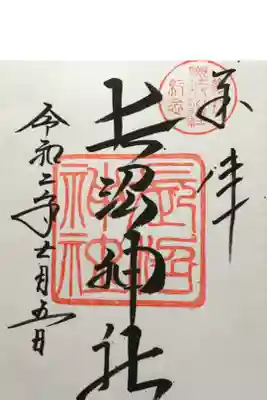 奉拝
長沼神社
長沼
神社
令和二年十一月五日